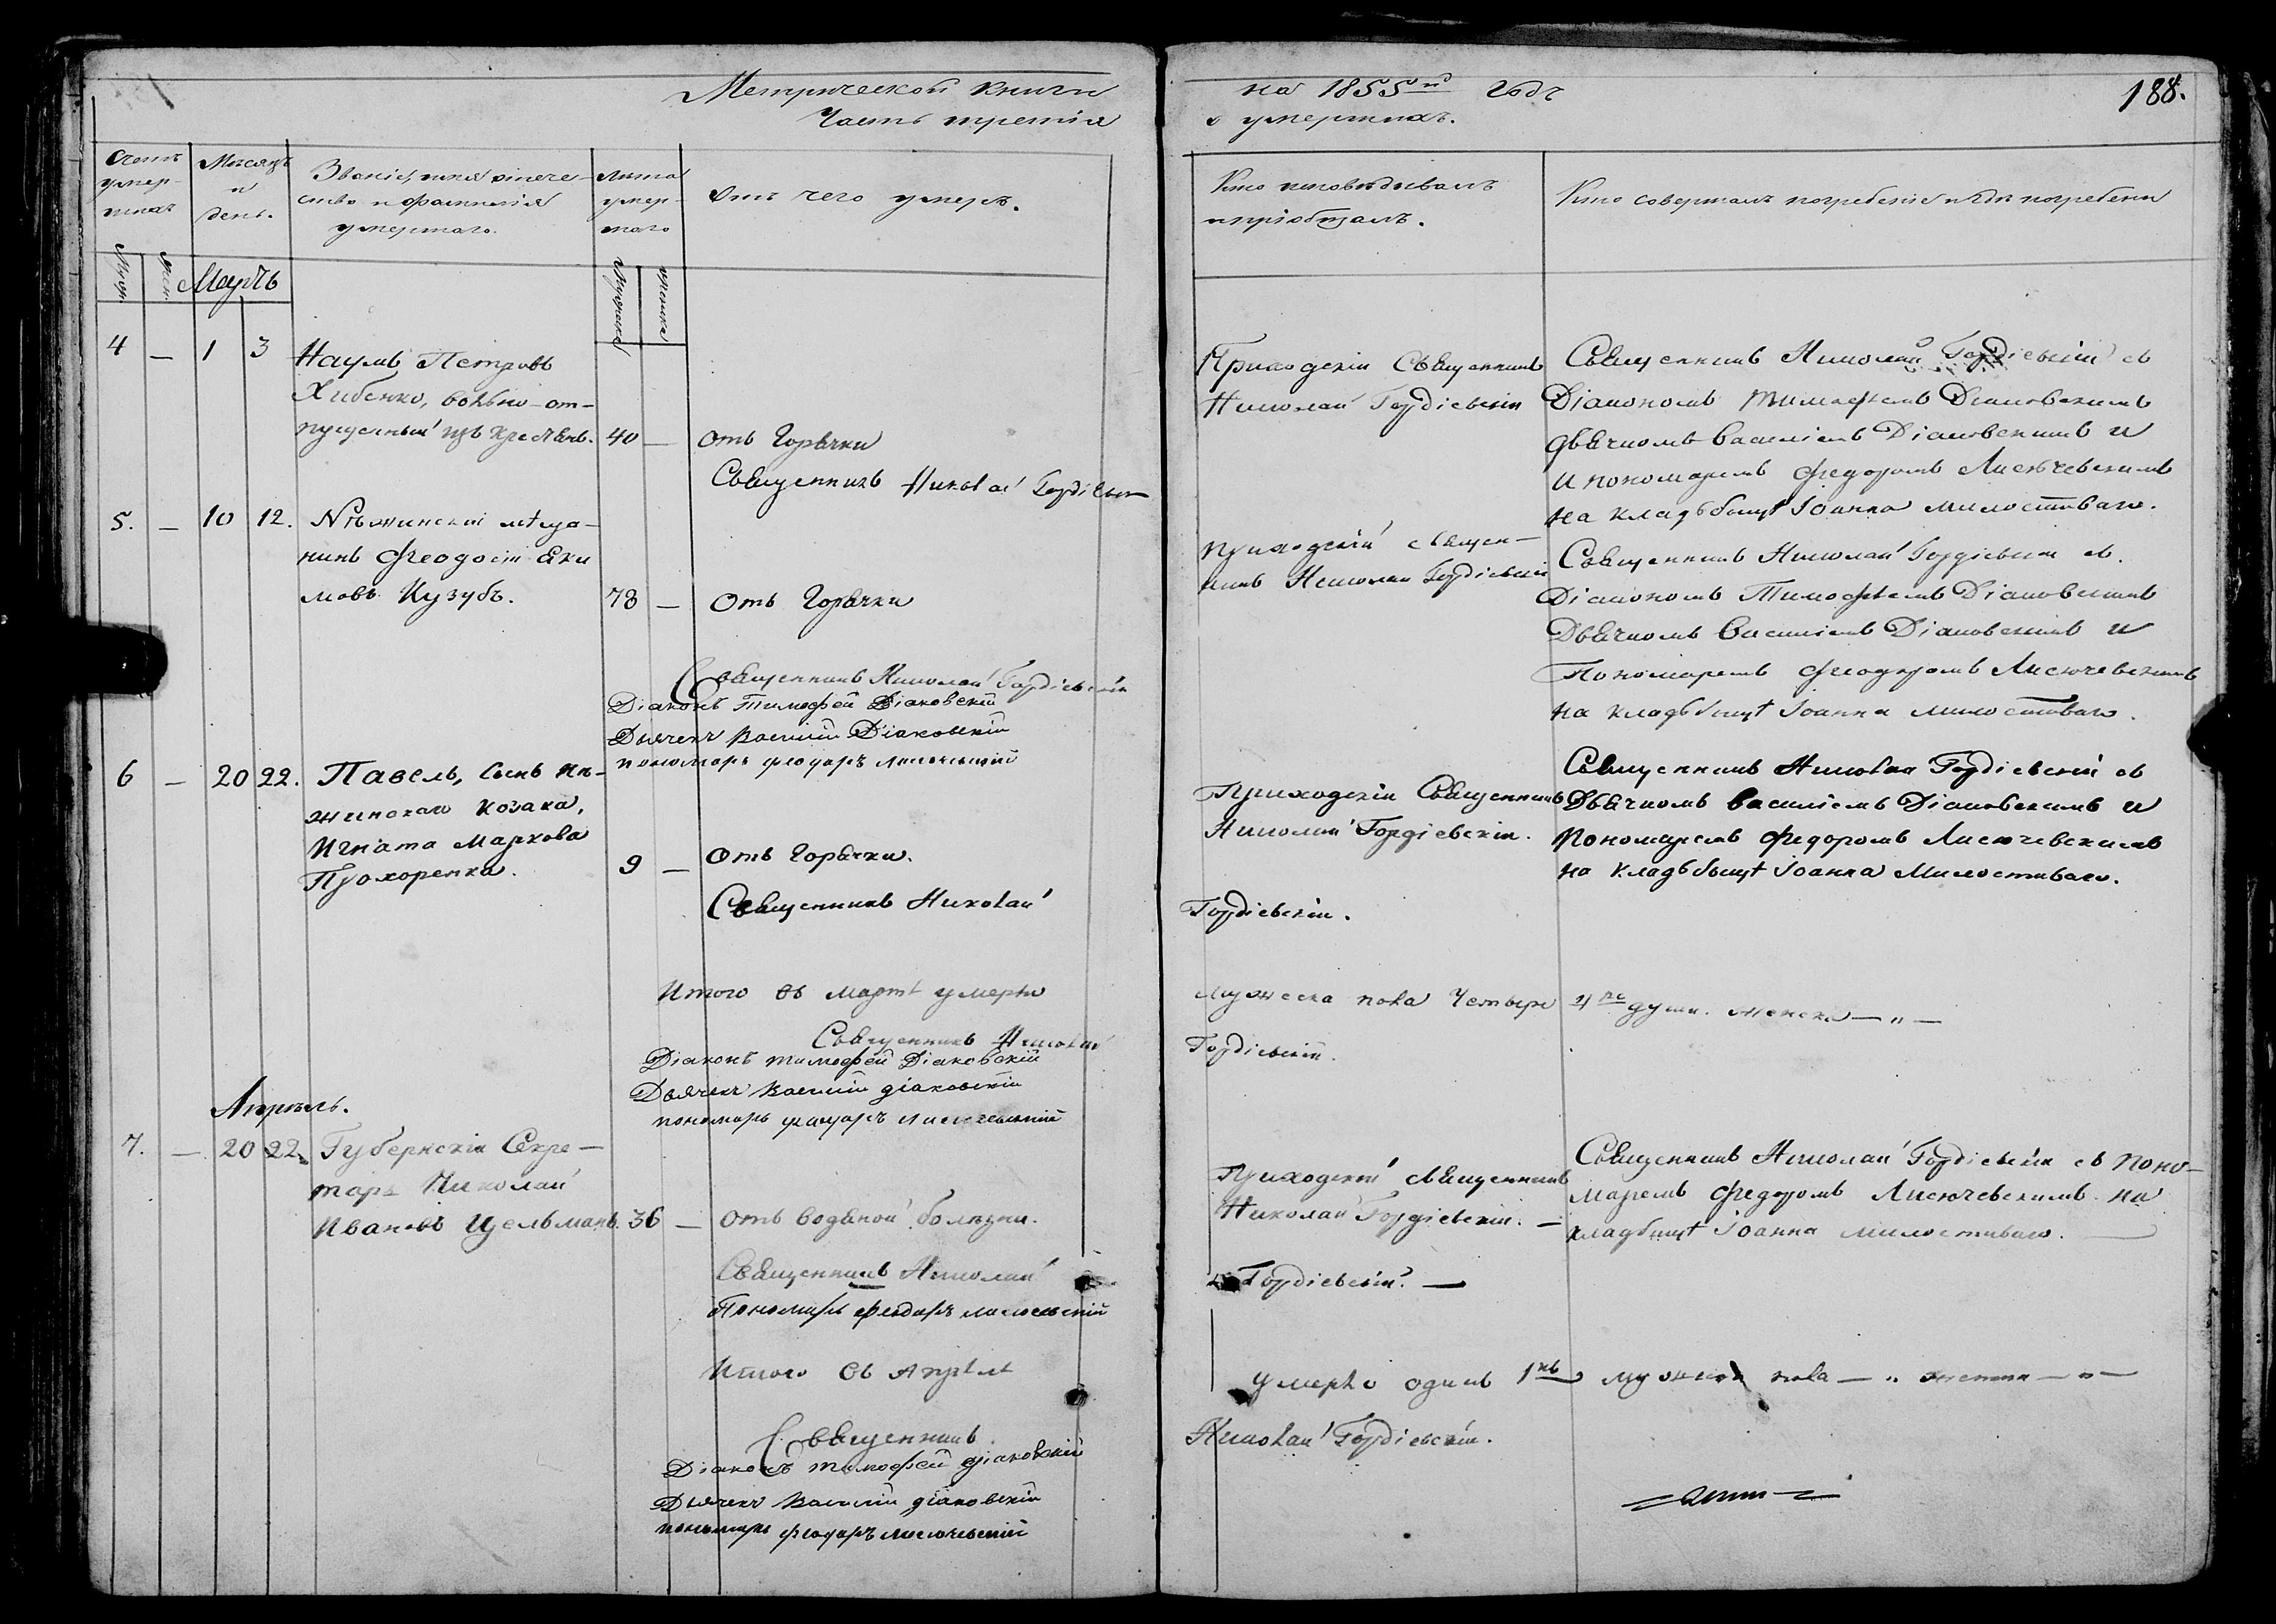 Метрической Книги на 1855й Годъ 188.
Часть третія о умершихъ.
Счетъ умер-шихъ
Мужес. Женс.
Мѣсяцъ и день.
Званіе, имя отече-
ство и фамилія
умершаго.
Лѣта умер-шаго
Мужеска Женска
отъ чего умеръ.
Кто исповѣдывалъ
и пріобщалъ.
Кто совершалъ погребеніе и гдѣ погребены
Мартъ
4 — 1 3 Наумъ Петровъ
Хибенко, вольно-от-
пущенный изъ крестьянъ. 40 — отъ Горячки
Священникъ Николай Гордіевскій
Приходскій Священникъ
Николай Гордіевскій
Священникъ Николай Гордіевскій съ
Діакономъ Тимофеемъ Діаковскимъ
дьячкомъ Василіемъ Діаковскимъ и
и пономаремъ Федоромъ Лисючевскимъ
на кладьбищѣ Іоанна милостиваго.
5. — 10 12. Нѣжинскій мѣща-
нинъ Феодосій Яки
мовъ Кузубъ. 78 — Отъ Горячки
Священникъ Николай Гордіевскій
Діаконъ Тимофей Діаковскій
Дьячекъ Василій Діаковскій
пономарь феодоръ Лисючевскій
приходскій священ-
никъ Николай Гордіевскій
Священникъ Николай Гордіевскій съ.
Діакономъ Тимофѣемъ Діаковскимъ
Дьячкомъ Василіемъ Діаковскимъ и
Пономаремъ Феодоромъ Лисючевскимъ
на кладьбищѣ Іоанна милостиваго.
6 — 20 22. Павелъ, сынъ Нѣ-
жинскаго козака,
Игната Маркова
Прохоренка. 9 — отъ Горячки.
Священникъ Николай Гордіевскій.
Приходскій Священникъ
Николай Гордіевскій.
Священникъ Николай Гордіевскій съ
Дьячкомъ Василіемъ Діаковскимъ и
Пономаремъ Федоромъ Лисючевскимъ
на кладьбищѣ Іоанна Милостиваго.
Итого въ мартѣ умерло мужеска пола Четыре 4ре души. женска — „ —
Священникъ Николай Гордіевскій.
Діаконъ тимофей Діаковскій
Дьячекъ Василій діаковскій
пономарь феодоръ Лисючевскій
Апрѣль.
7. — 20 22. Губернскій Секре-
тарь Николай
Ивановъ Цельманъ. 36 — отъ водяной болѣзни.
Священникъ Николай Гордіевскій. —
Пономарь феодоръ лисючевскій
Приходскій Священникъ
Николай Гордіевскій. —
Священникъ Николай Гордіевскій съ Поно-
маремъ Федоромъ Лисючевскимъ на
кладбищѣ Іоанна милостиваго. —
Итого въ Апрѣлѣ умерло одинъ 1нъ мужеска пола — „ женска — „ —
Священникъ Николай Гордіевскій.
Діаконъ тимофей діаковскій
Дьячекъ Василій діаковскій
пономарь феодоръ лисючевскій